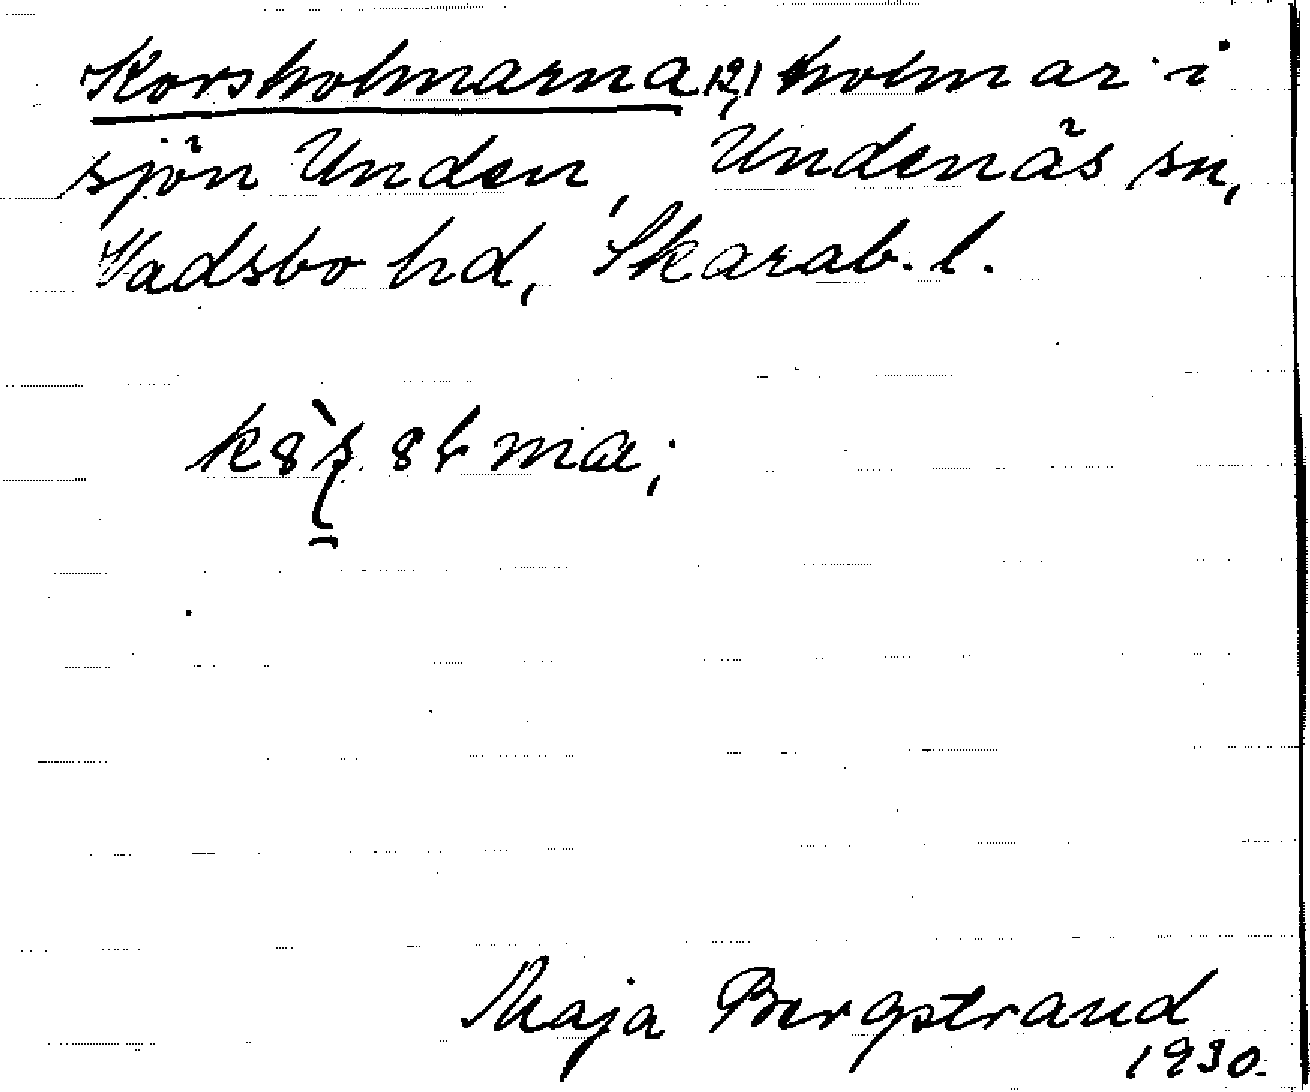 Korsholmarna (2), holmar i
sjön Unden, Undenäs sn,
Vadsbo hd, Skarab. l.
Maja Bergstrand
1930.